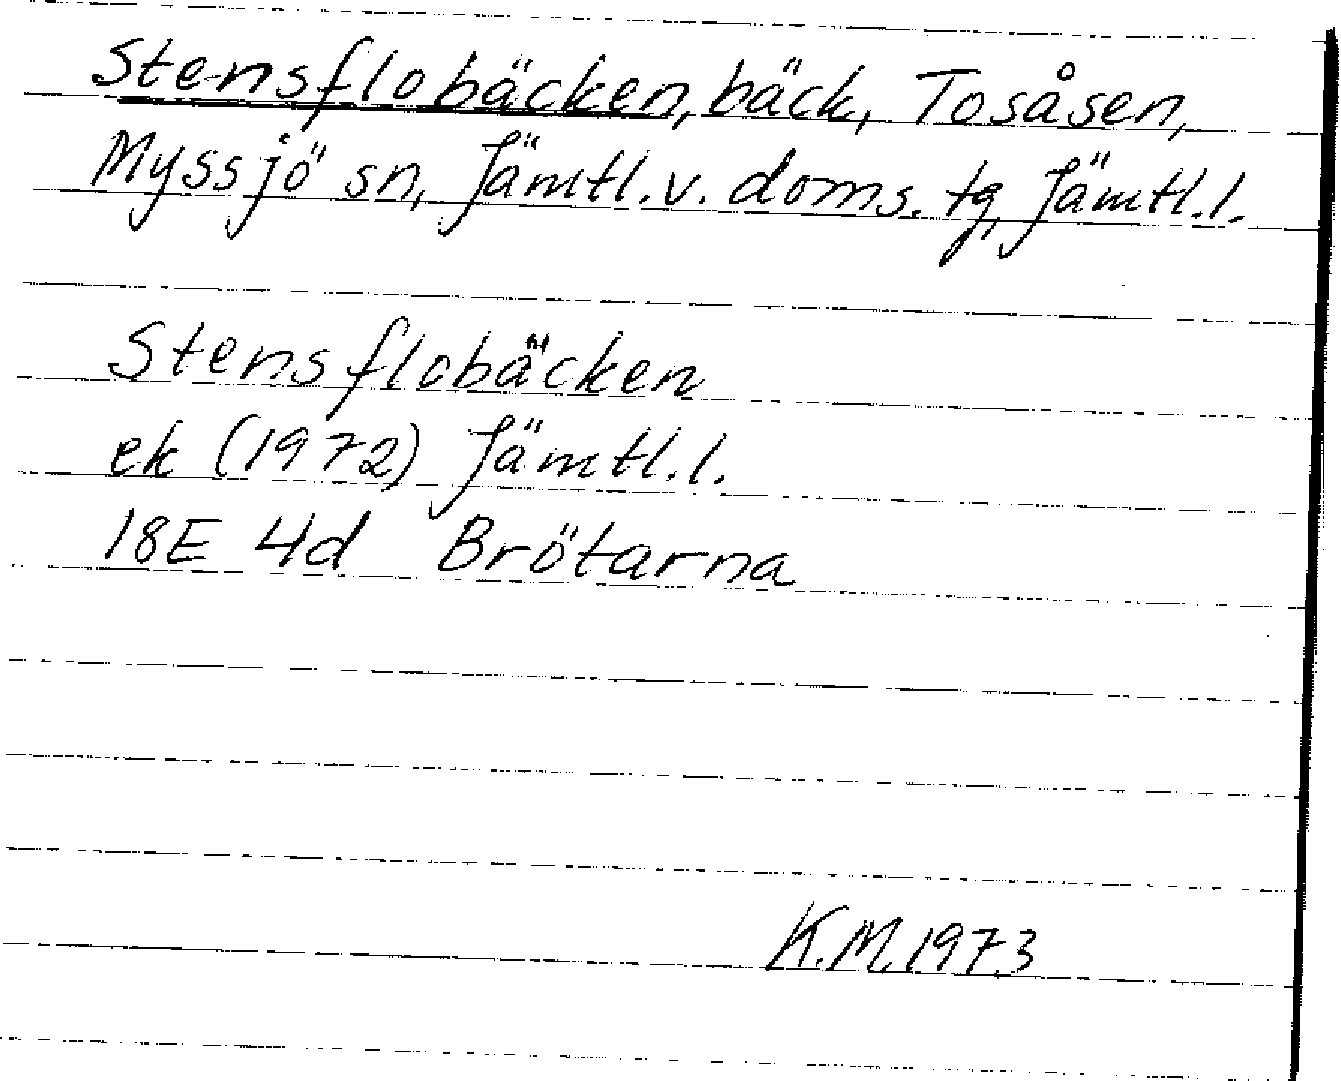 Stensflobäcken, bäck, Tosåsen,
Myssjö sn, Jämtl. v. doms. tg, Jämtl. l.
Stensflobäcken
ek (1972) Jämtl. l.
18E 4d Brötarna
K.M. 1973